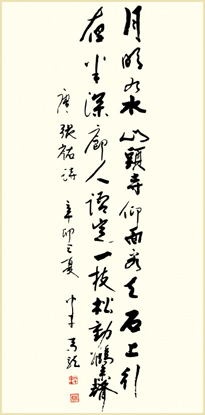 月明如水山頭寺仰面看天石上行
夜半深廊人語定一枝松動鶴來聲
唐張祜詩 辛卯之夏